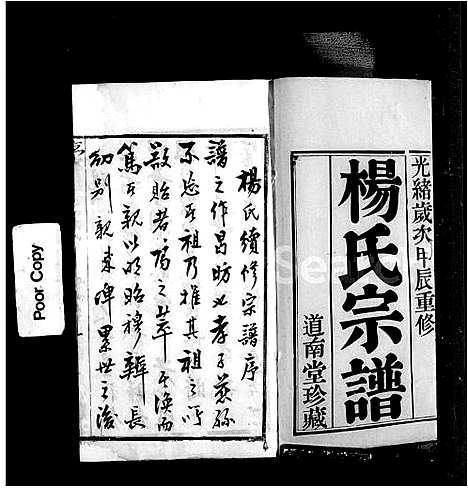 光緒歲次甲辰重修
楊氏宗譜
道南堂珍藏
楊氏續修宗譜序
譜之作昌昉也孝子慈孫
不忘其祖乃推其祖之所
自貽者為之萃其渙而
篤其親以明昭穆辨長
幼別親疎俾累世之後
Poor Copy